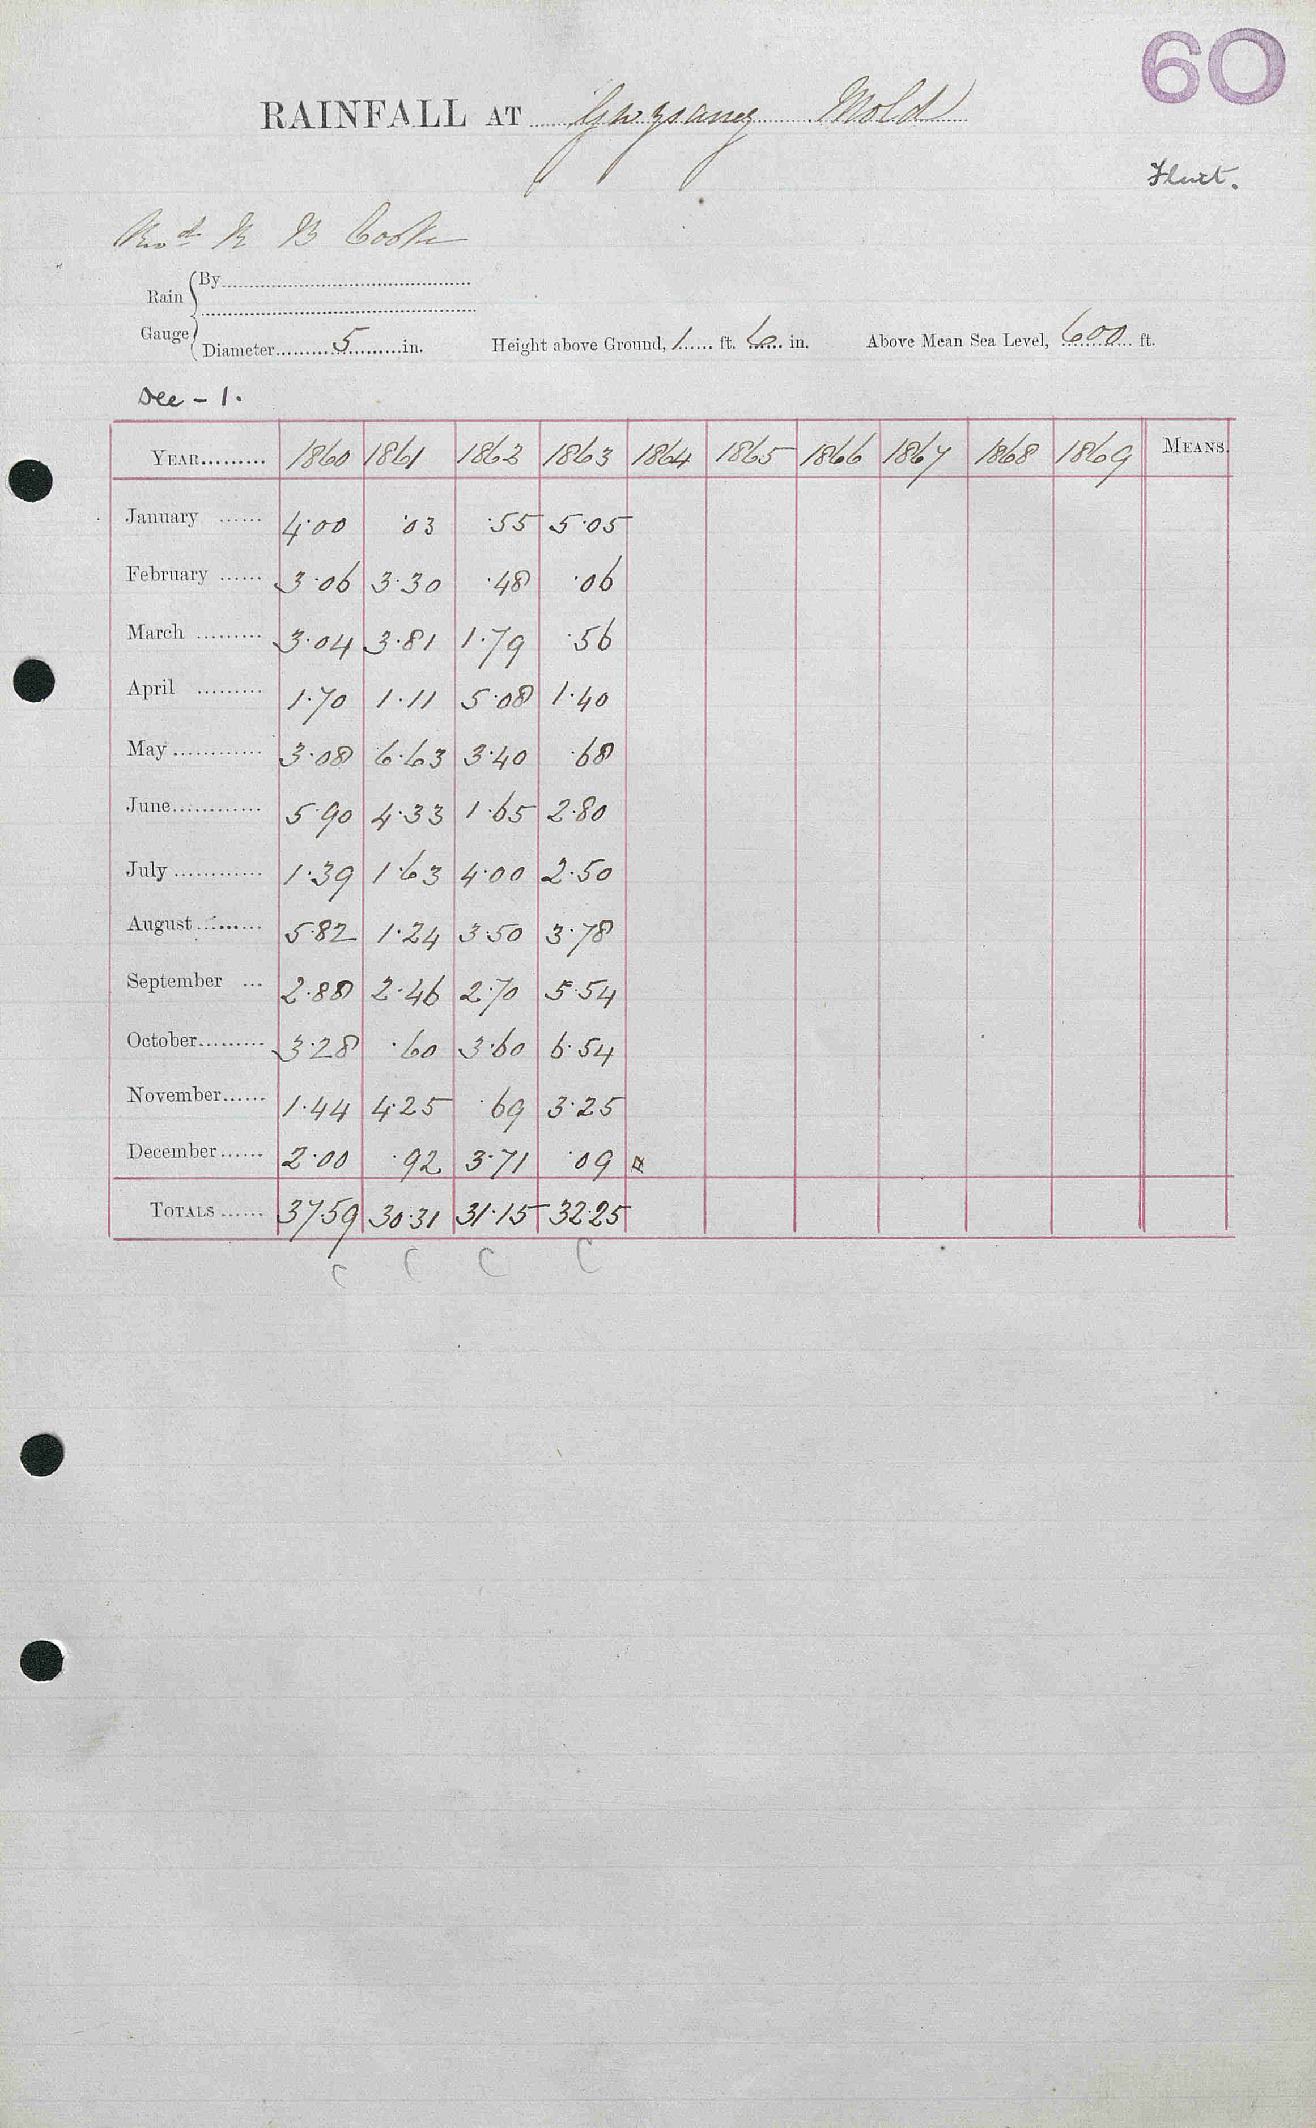 60
RAINFALL AT Gwysaney Mold
Flint.
R B Cooke
Rain Gauge { By
Diameter 5 in. Height above Ground, 1 ft. 6 in. Above Mean Sea Level, 600 ft.
Dec - 1.
YEAR 1860 1861 1862 1863 1864 1865 1866 1867 1868 1869 MEANS.
January 4.00 .03 .55 5.05
February 3.06 3.30 .48 .06
March 3.04 3.81 1.79 .56
April 1.70 1.11 5.08 1.40
May 3.08 6.63 3.40 .68
June 5.90 4.33 1.65 2.80
July 1.39 1.63 4.00 2.50
August 5.82 1.24 3.50 3.78
September 2.88 2.46 2.70 5.54
October 3.28 .60 3.60 6.54
November 1.44 4.25 .69 3.25
December 2.00 .92 3.71 .09
TOTALS 37.59 30.31 31.15 32.25
C C C C